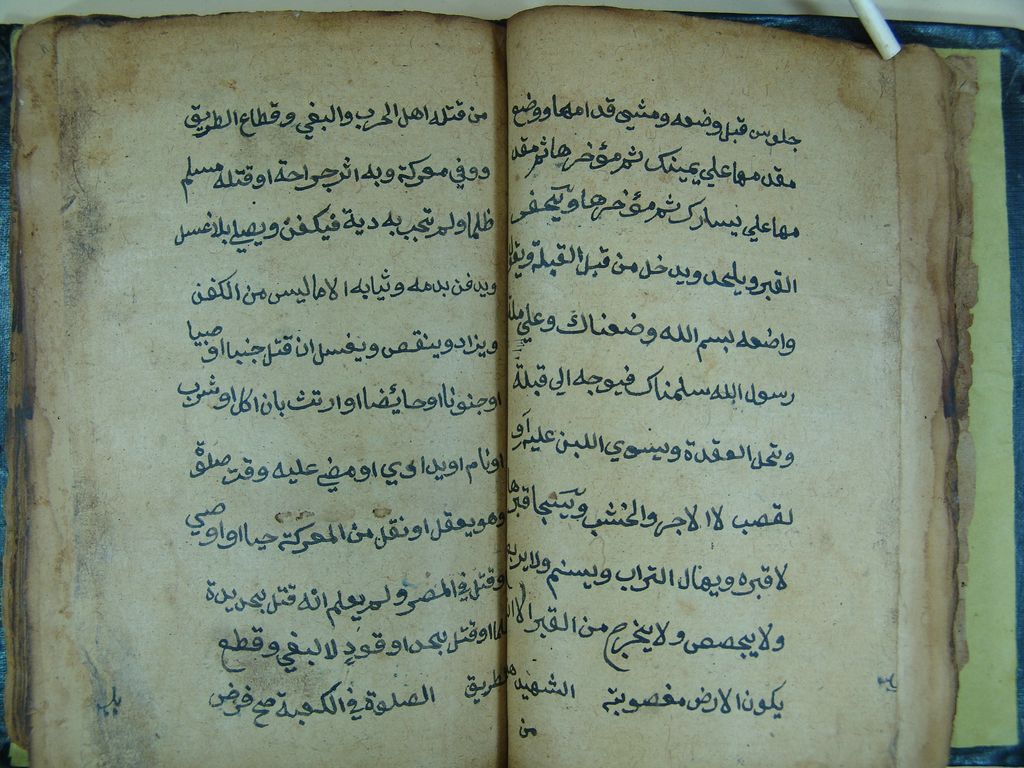 جلوس قبل وضعه ومشي قدامها ووضع
مقدمها علي يمينك ثم مؤخرها ثم مقد
مها علي يسارك ثم مؤخرها ويحفر
القبر ويلحد ويدخل من قبل القبلة ويقول
واضعه بسم الله وضعناك وعلي ملة
رسول الله سلمناك فيوجه الي قبلة
وتحل العقدة ويسوي اللبن عليه او
لقصب لا الاجر والخشب ويسجا قبرها
لا قبره ويهال التراب ويسنم ولا يربع
ولا يجصص ولا يخرج من القبر الا ان
يكون الارض مغصوبة الشهيد هو
من
من قتله اهل الحرب والبغي وقطاع الطريق
ووفي معركة وبه اثر جراحة او قتله مسلم
ظلما ولم تجب به دية فيكفن ويصلي بلا غسل
ويدفن بدمه وثيابه الا ما ليس من الكفن
ويزاد وينقص ويغسل ان قتل جنبا او صبيا
او جنونا او حائضا او ارتث بان اكل او شرب
او نام او يداوي او مضي عليه وقت صلوة
وهو يعقل او نقل من المعركة حيا او اوصي
وقتل في المصر ولم يعلم انه قتل بحديدة
ظلما او قتل بحد او قود لا لبغي وقطع
طريق الصلوة في الكعبة صح فرض